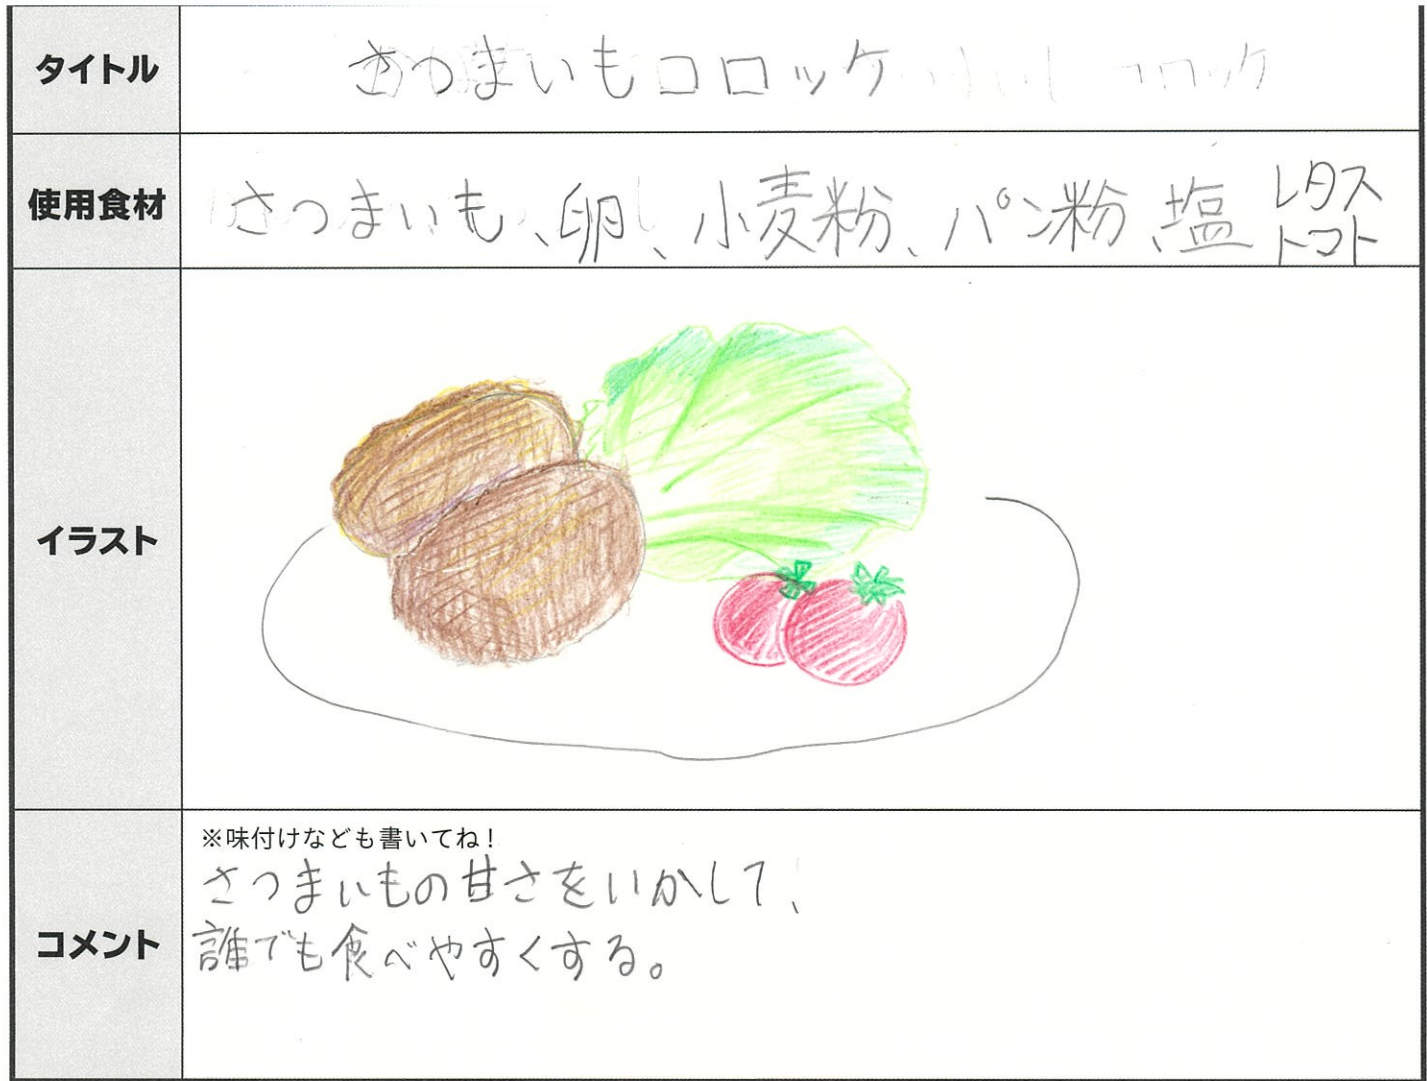 タイトル
さつまいもコロッケ
使用食材
さつまいも、卵、小麦粉、パン粉、塩
レタス
トマト
イラスト
コメント
※味付けなども書いてね！
さつまいもの甘さをいかして、
誰でも食べやすくする。